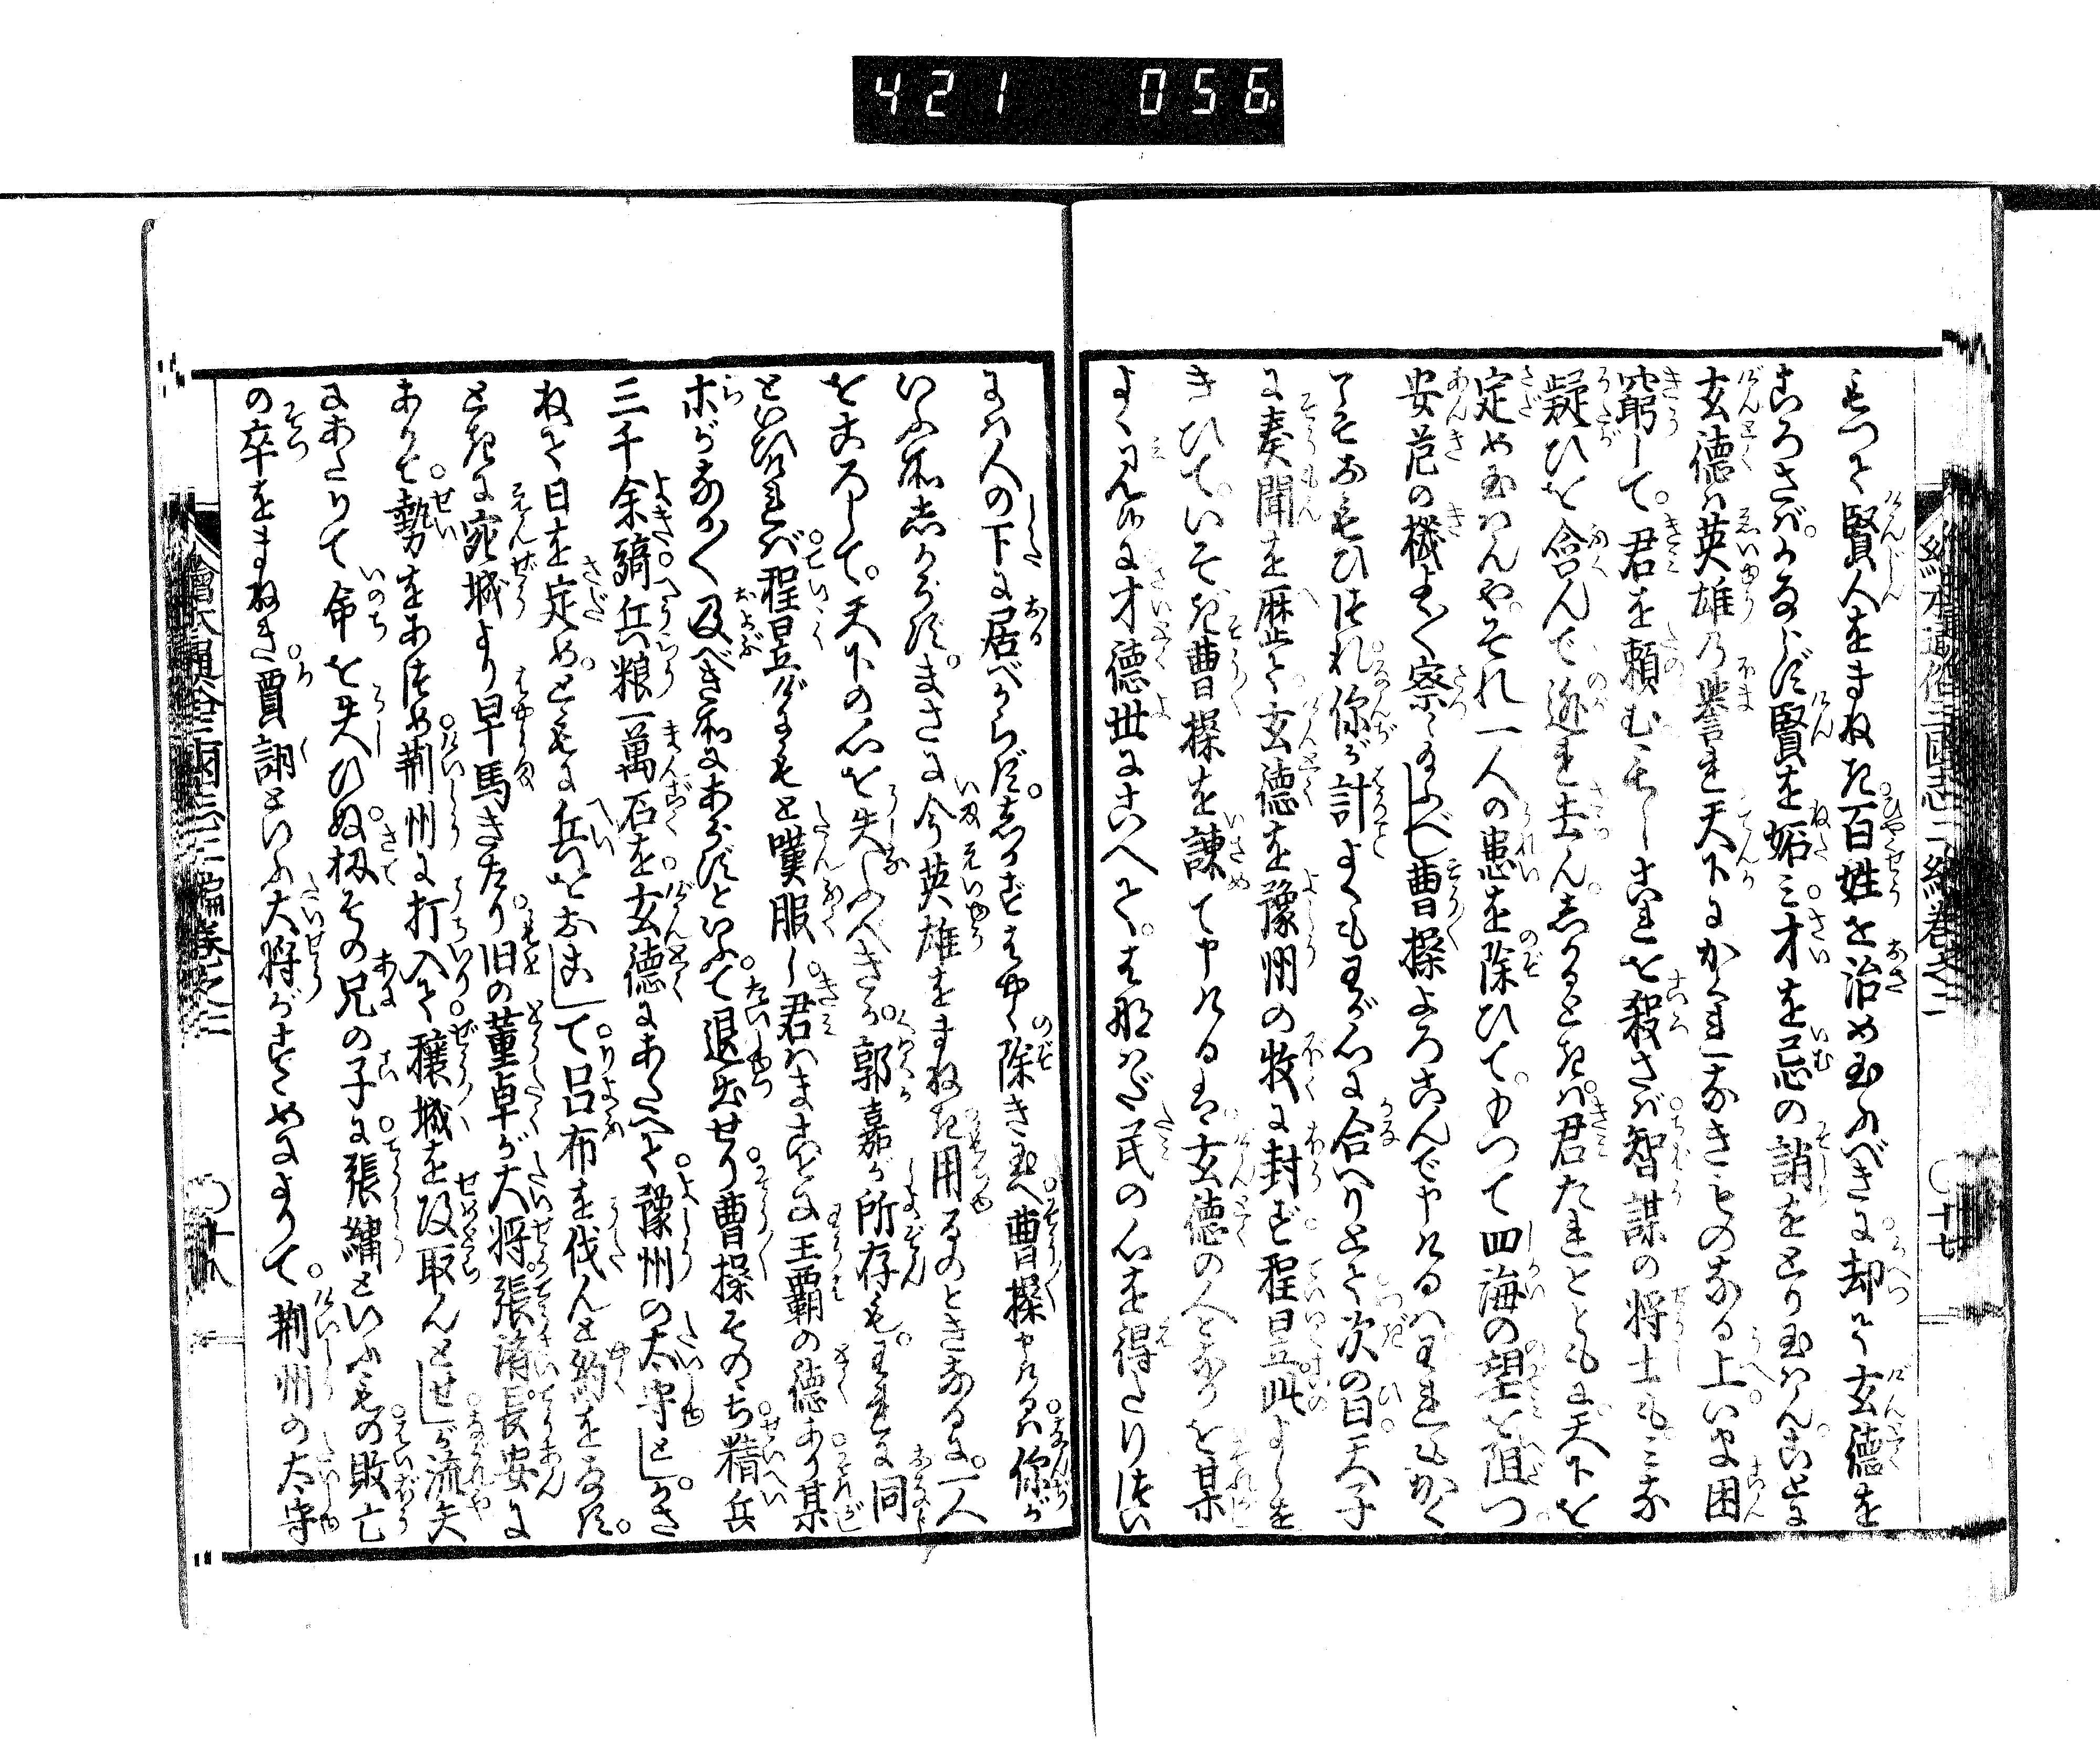 421 056
もつて賢人をまねき百姓を治め玉ふべきに却て玄徳を
ころさバかならず賢を妬ミ才を忌の誚をとり玉はんことに
玄徳ハ英雄乃誉れ天下にかくれなきものなる上いま困
窮して君を頼むもしこれを殺さバ智謀の将士もミな
疑ひを含んで逃れ去んしかるときハ君たれとともに天下を
定め玉はんやそれ一人の患を除ひてもつて四海の望を阻つ
安危の機よく察し玉ふべし曹操よろこんで申けるハわれもかく
こそおもひつれ你が計よくもわが心に合へりとて次の日天子
に奏聞を歴て玄徳を豫州の牧に封ず程昱此よしを
きひていそぎ曹操を諌て申けるは玄徳の人となりを某
よく見候に才徳世にこへてはなはだ民の心を得たりつい
にハ人の下に居べからずしかずはやく除き玉へ曹操申けるハ你が
いふ所しからずまさに今英雄をまねき用るのときなるに一人
をころして天下の心を失ふべきか郭嘉が所存もわれに同
といひけれバ程昱がにもと嘆服し君ハまことに王覇の徳あり某
ホがなかく及べき所にあらずといふて退出せり曹操そのゝち精兵
三千余騎兵粮一萬石を玄徳にあたへて豫州の太守としかさ
ねて日を定めともに兵をおこして呂布を伐んと約をなす
ときに宛城より早馬きたり旧の董卓が大将張済長安に
ありて勢をあつめ荆州に打入て穰城を攻取んとせしが流矢
にあたりて命を失ひぬ扨その兄の子に張繡といふもの敗亡
の卒をまねき賈詡といふ大将がすゝめによりて荆州の太守
繪本通俗三國志二編巻之二
〇十七
繪本通俗三國志二編巻之二
〇十八